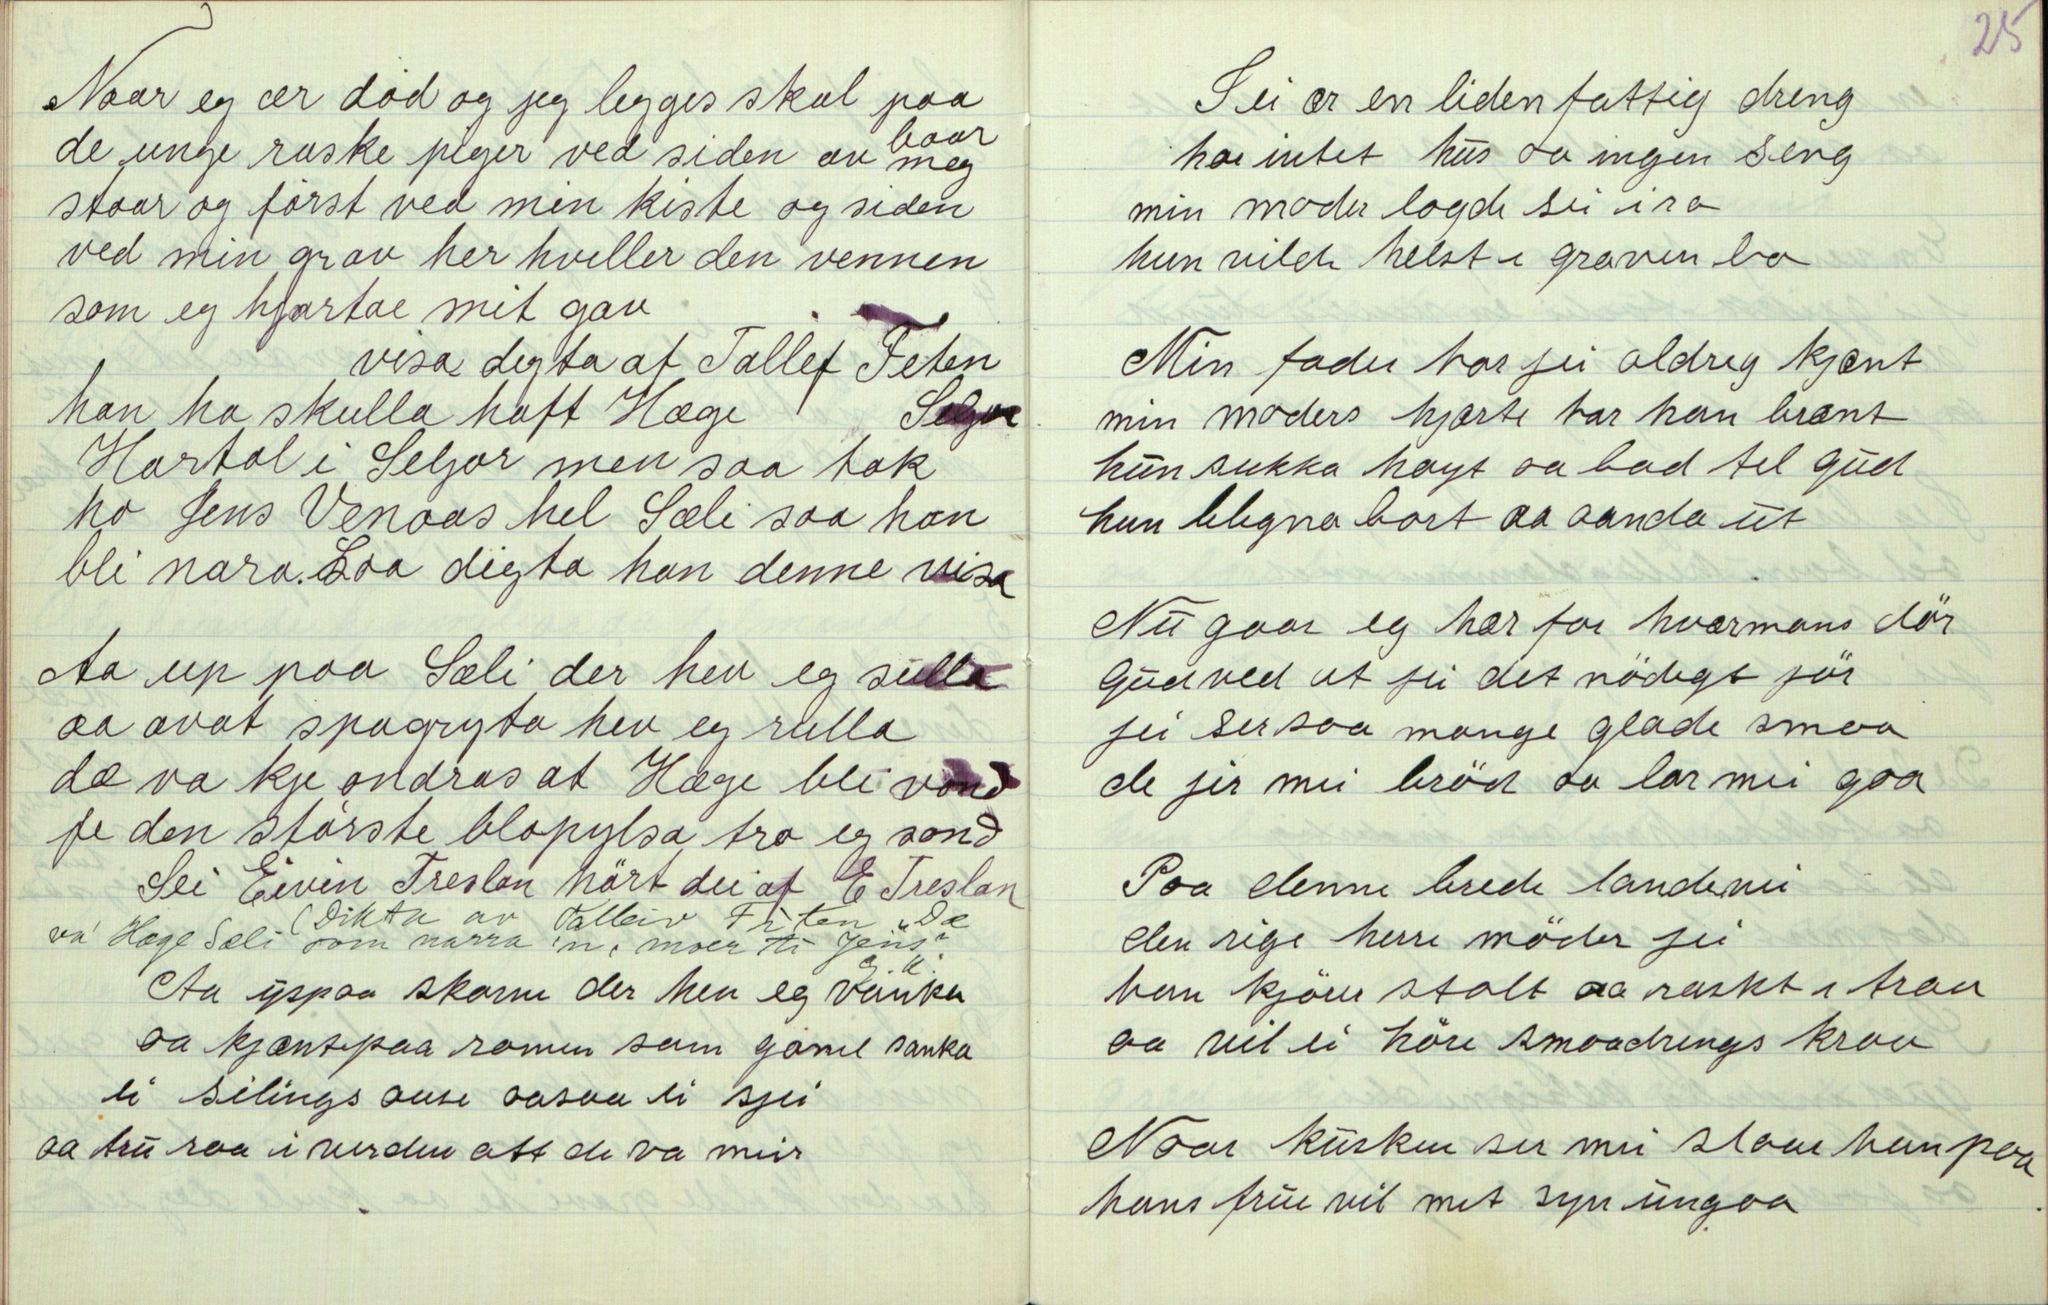 Naar eg ær död og jeg legges skal paa
baar
de unge raske piger ved siden av meg
staar og först ved min kiste og siden
ved min grav her hviller den vennen
som eg hjartæ mit gav
visa degta af Tallef Feten
han ha skulla haft Hæge Seljor
Hartal i Seljor men saa tok
ho Jens Venaas hel Sæli saa han
bli nara. Saa digta han denne visa
Aa up paa Sæli der hev eg sulla
aa avat spagryta hev eg rulla
dæ va kje ondras at Hæge bli vond
fe den störste blapylsa tra eg sond
Sei Eivin Treslan hört dei af E Treslan
(Dikta av Talleiv Fæten „Dæ
va' Hæge Sæli som narra 'n, moer ti Jens"
Aa üppaa skarne der hev eg vanka
aa kjænt paa romen som gamle sanka
ei silings ause aasaa ei sjei
aa trü raa i verden att de va meir
25
Jei ær en liden fattig dreng
har intet hüs aa ingen seng
min moder lagde sei i ro
hun vilde helst i graven bo
Min fader har jei aldreg kjænt
min moders hjærte har han brænt
hün sukka hayt aa bad tel Güd
hun blegna bort aa aanda üt
Nü gaar eg hær for hværmans dör
Güd ved at jei det nödigt jör
jei ser saa mange glade smaa
de jir mei bröd aa lar mei gaa
Paa denne brede landevei
den rige herre möder jei
han kjörer stolt aa raskt i trav
aa vil ei höre smaadrengs krav
Naar küsken ser mei slaar han paa
hans früe vil met syn üngaa